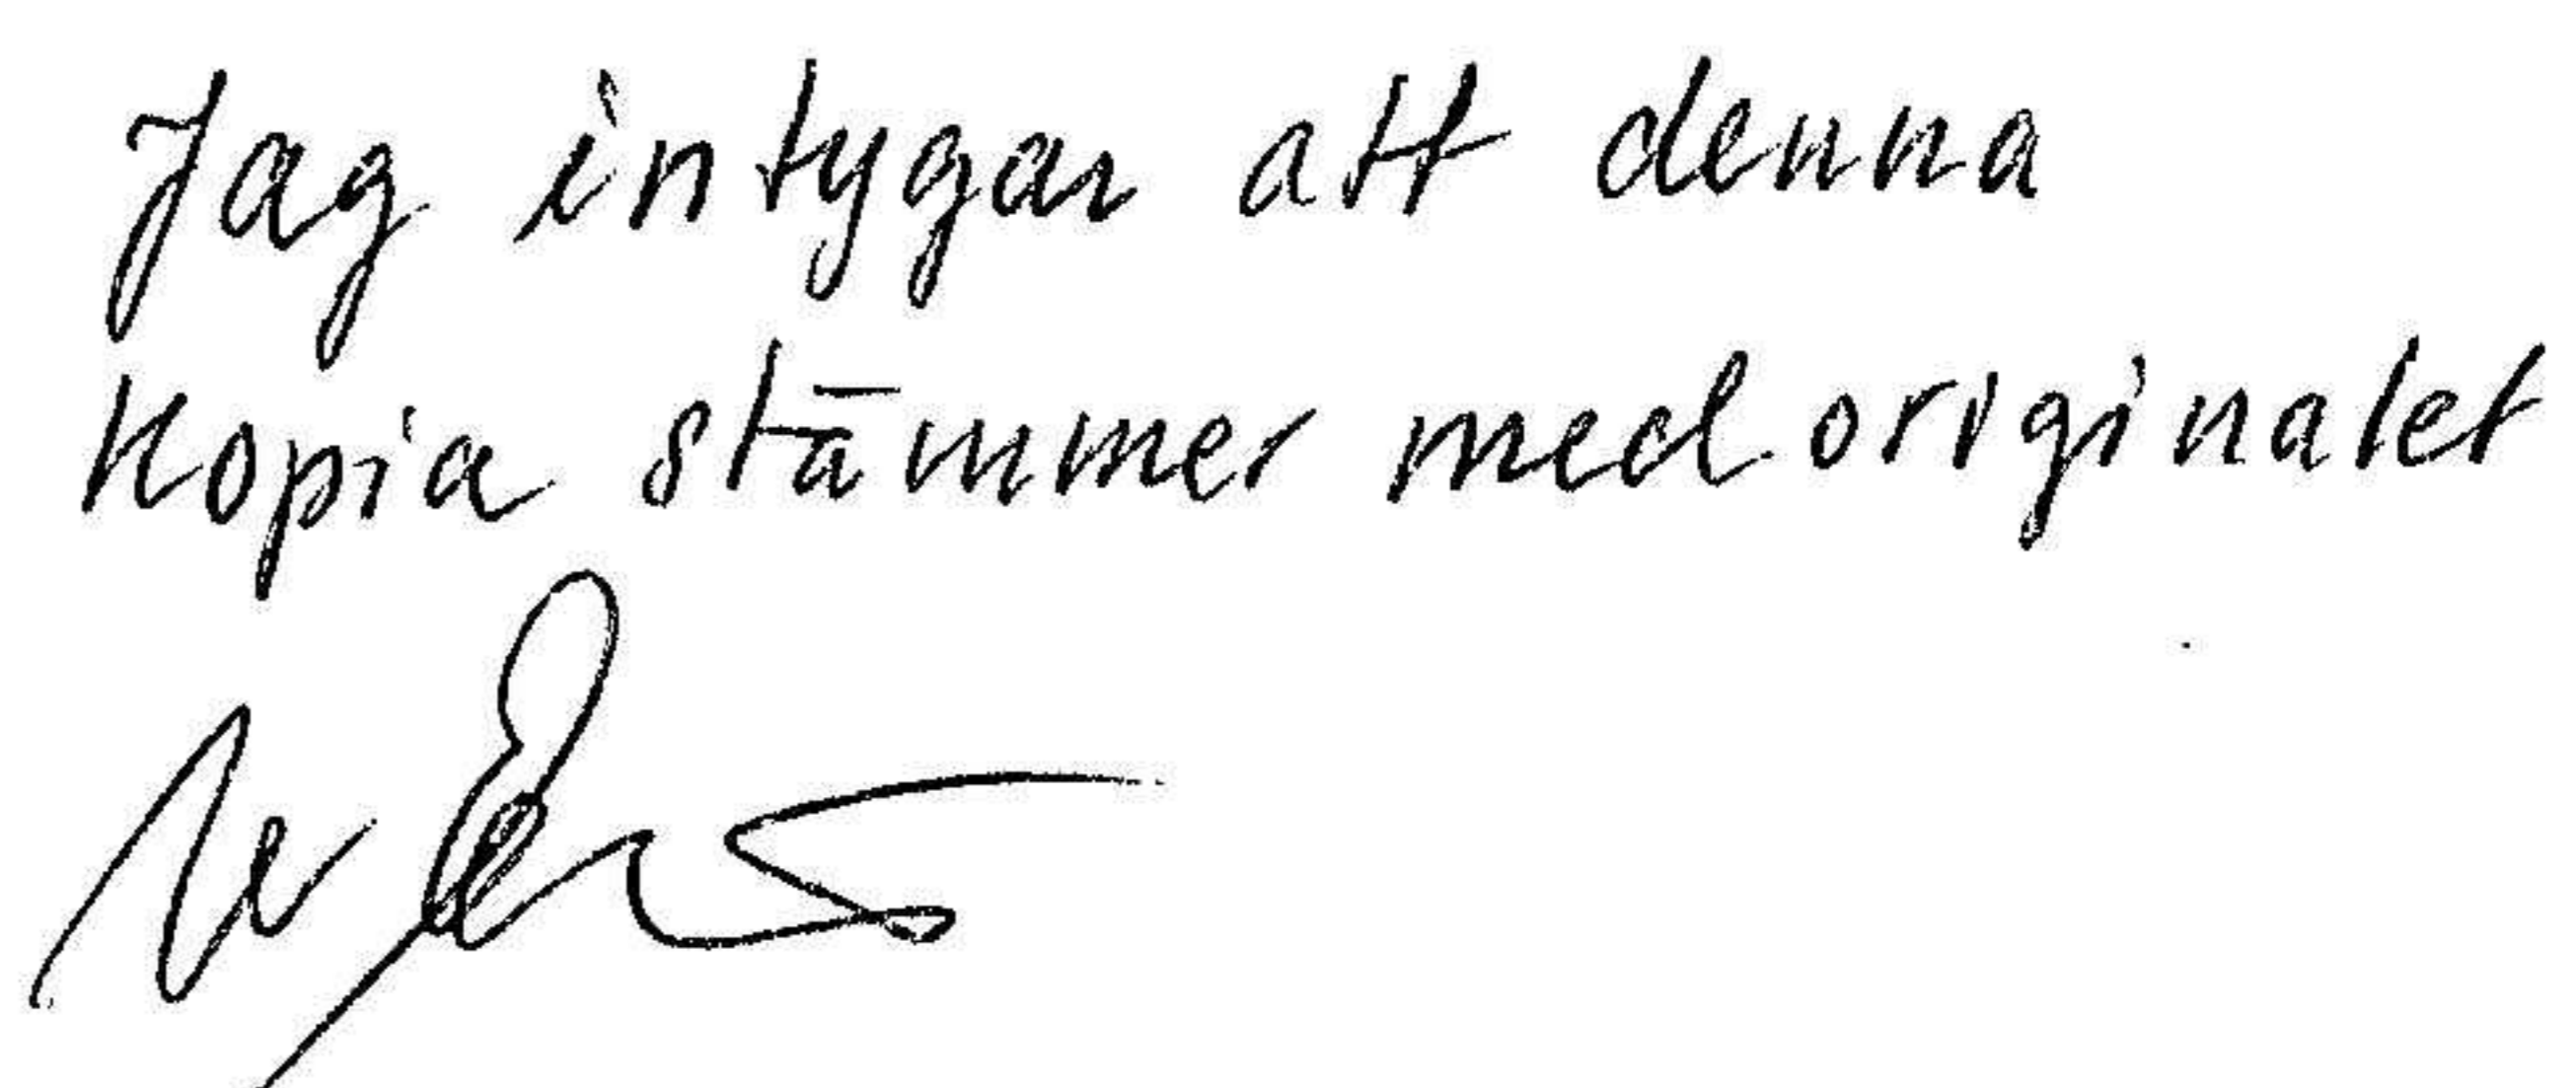 Jag intygar att denna
kopia stämmer med originalet